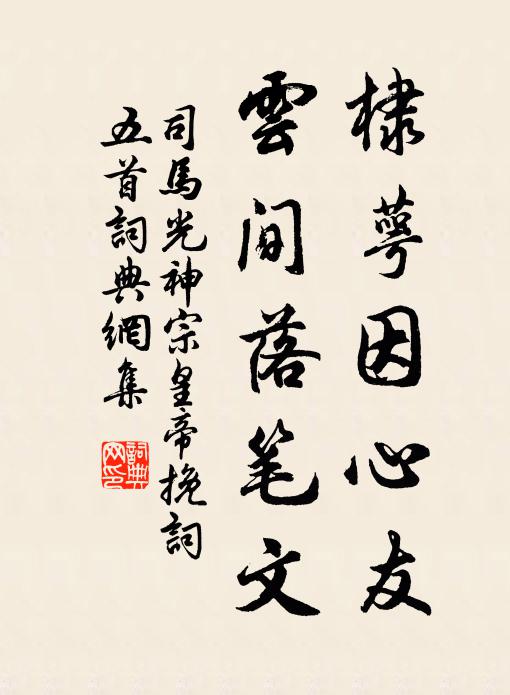 棣萼因心友
雲間落笔文
司馬光神宗皇帝挽詞
五首詞典網集
詞典
网印